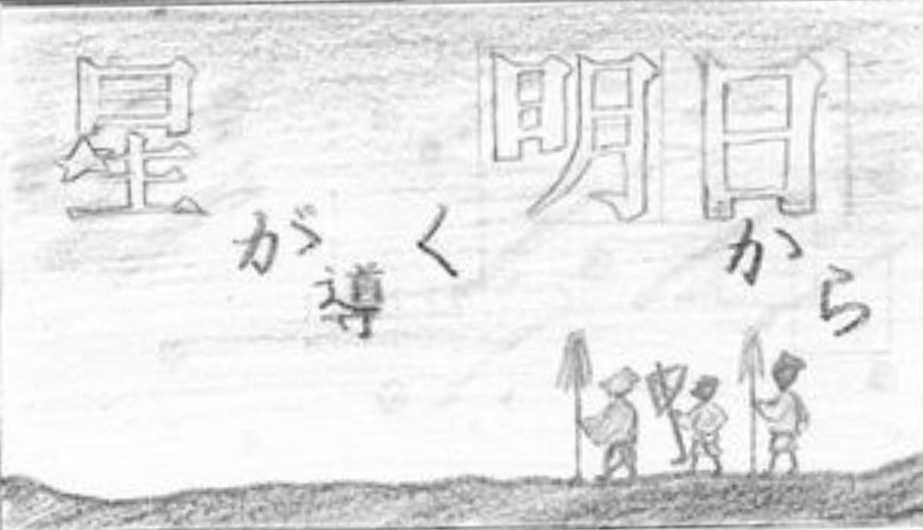 星が導く明日から